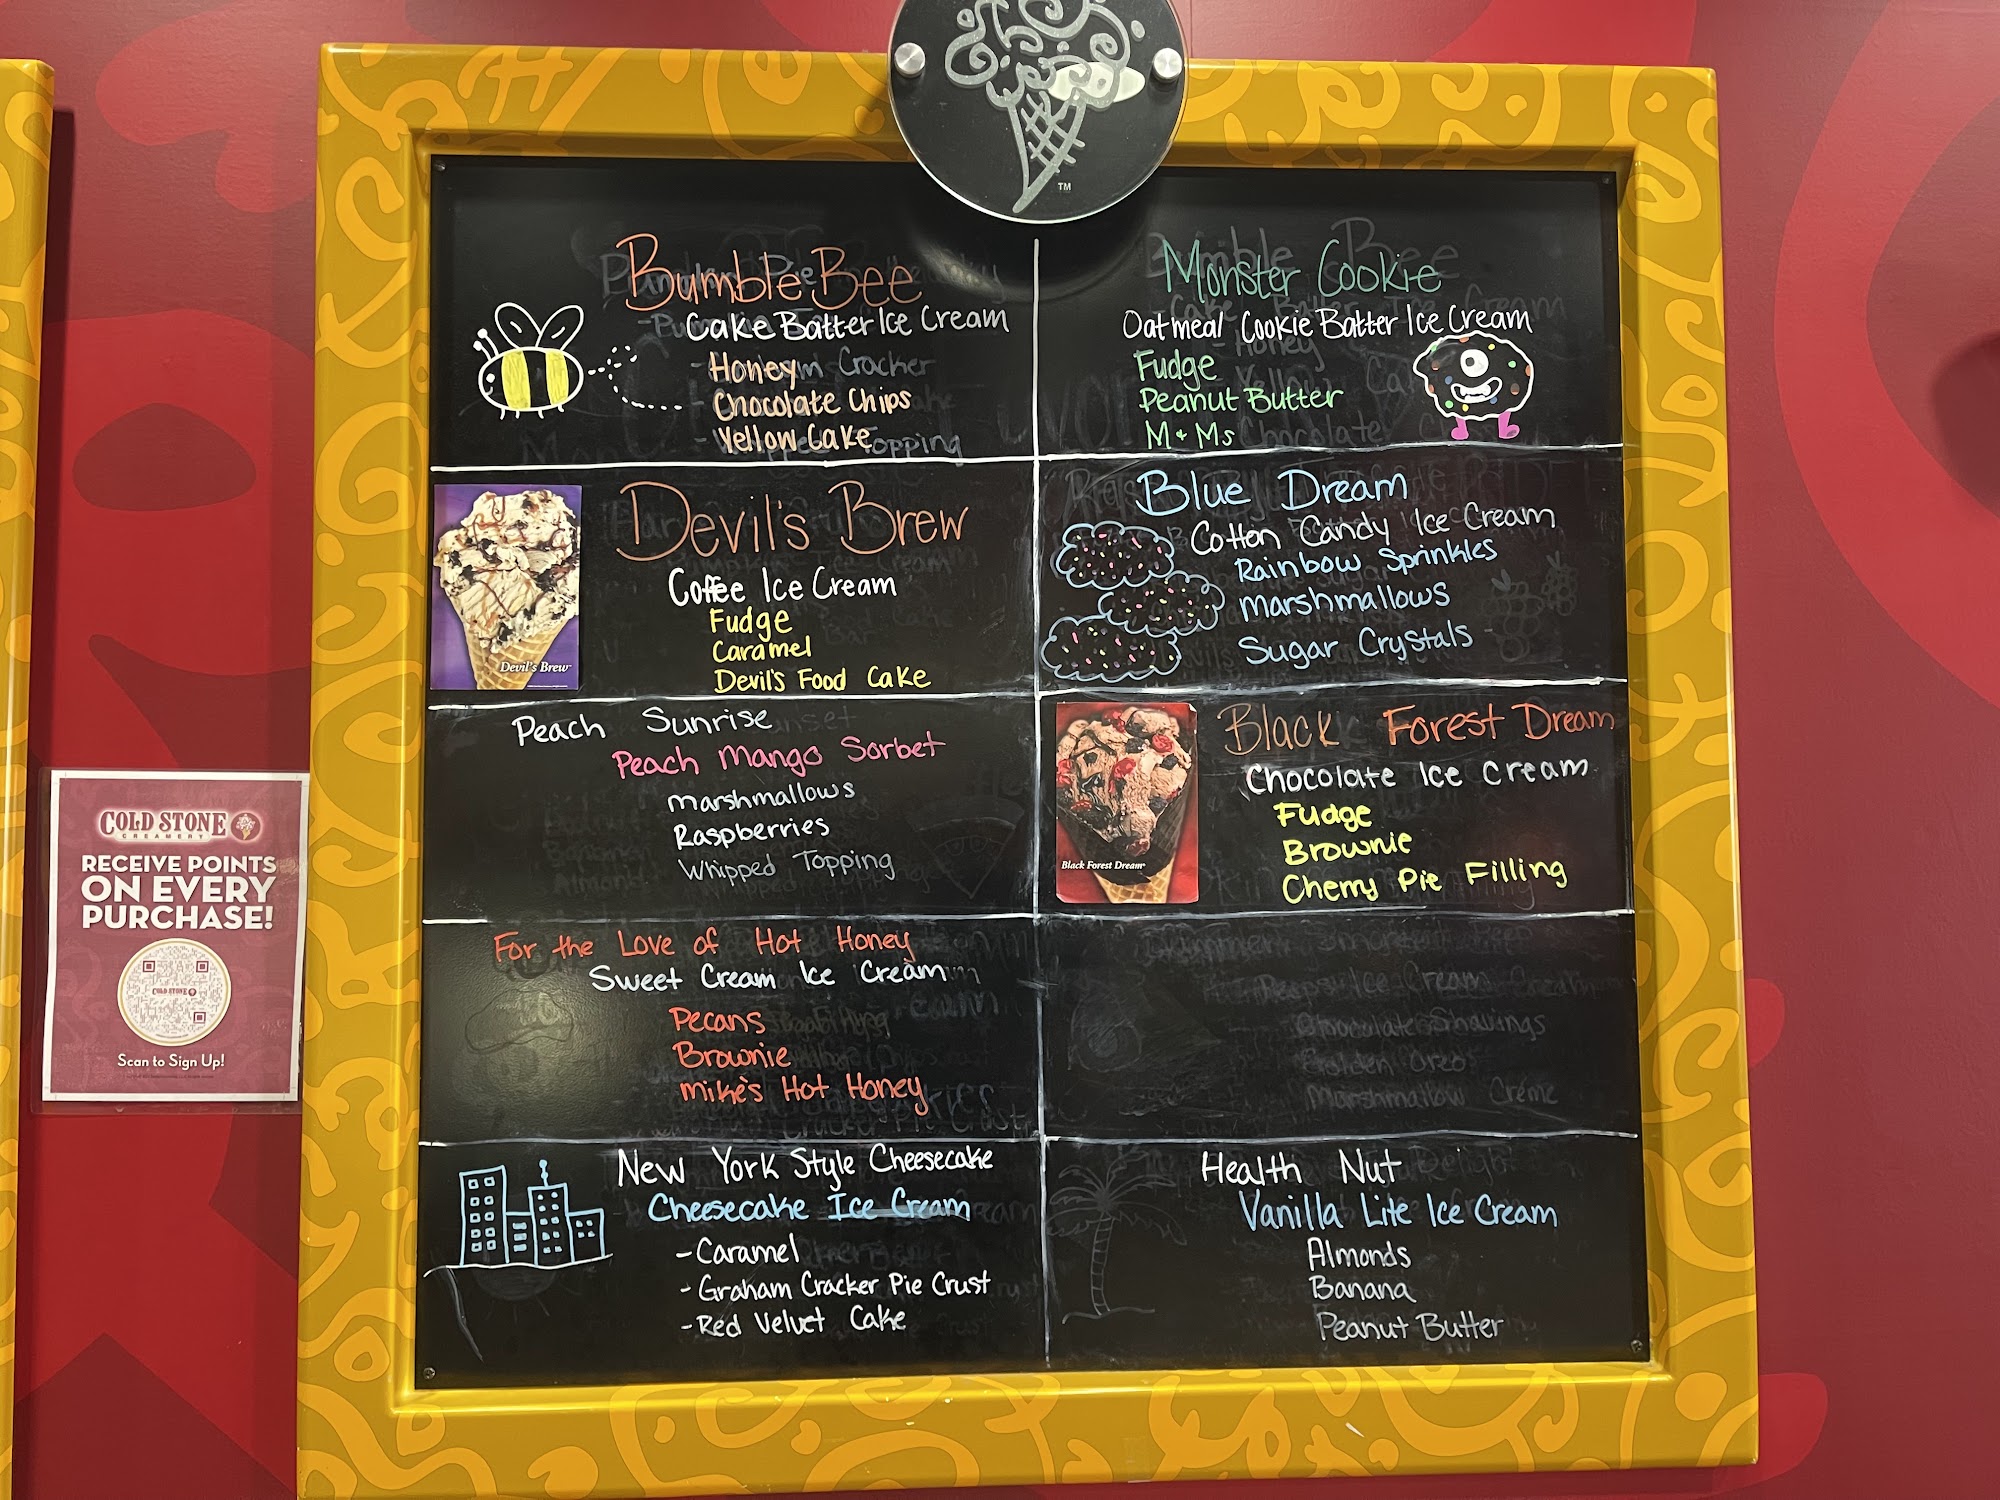 TM
Bumble Bee
Cake Batter Ice Cream
Honey
Chocolate Chips
Yellow Cake
Monster Cookie
Oatmeal Cookie Batter Ice Cream
Fudge
Peanut Butter
M + Ms
Devil's Brew
Coffee Ice Cream
Fudge
Caramel
Devil's Food Cake
Devil's Brew
Blue Dream
Cotton Candy Ice Cream
Rainbow Sprinkles
Marshmallows
Sugar Crystals
Peach Sunrise
Peach Mango Sorbet
Marshmallows
Raspberries
Whipped Topping
Black Forest Dream
Chocolate Ice Cream
Fudge
Brownie
Cherry Pie Filling
Black Forest Dream
For the Love of Hot Honey
Sweet Cream Ice Cream
Pecans
Brownie
Mike's Hot Honey
Peeps Ice Cream
Chocolate Shavings
Golden Oreo
Marshmallow Créme
New York Style Cheesecake
Cheesecake Ice Cream
- Caramel
- Graham Cracker Pie Crust
- Red Velvet Cake
Health Nut
Vanilla Lite Ice Cream
Almonds
Banana
Peanut Butter
COLD STONE
CREAMERY
RECEIVE POINTS
ON EVERY
PURCHASE!
COLD STONE
Scan to Sign Up!